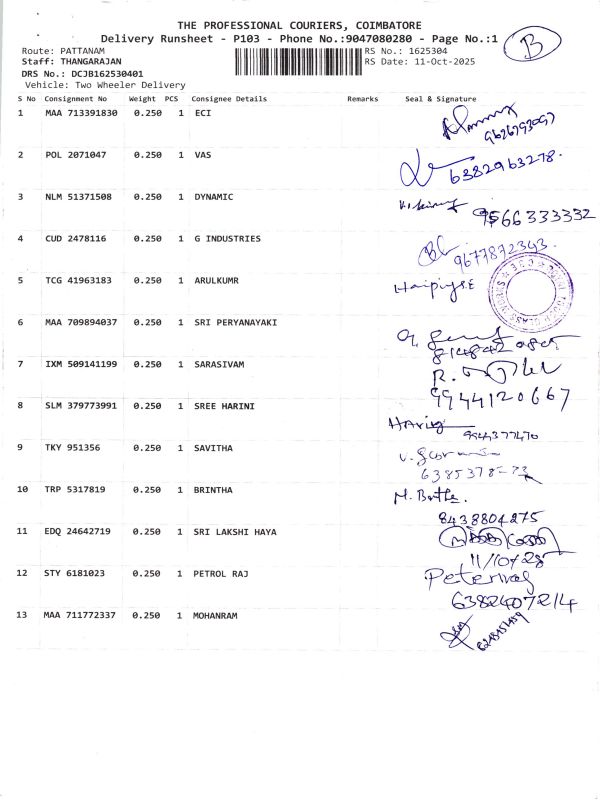 THE PROFESSIONAL COURIERS, COIMBATORE
Delivery Runsheet - P103 - Phone No.:9047080280 - Page No.:1
B
Route: PATTANAM
RS No.: 1625304
Staff: THANGARAJAN
RS Date: 11-Oct-2025
DRS No.: DCJB162530401
Vehicle: Two Wheeler Delivery
S No Consignment No Weight PCS Consignee Details Remarks Seal & Signature
1 MAA 713391830 0.250 1 ECI
9626793097
2 POL 2071047 0.250 1 VAS
6382963278.
3 NLM 51371508 0.250 1 DYNAMIC
9566333332
4 CUD 2478116 0.250 1 G INDUSTRIES
9677872393
5 TCG 41963183 0.250 1 ARULKUMR
6 MAA 709894037 0.250 1 SRI PERYANAYAKI
7 IXM 509141199 0.250 1 SARASIVAM
9944120667
8 SLM 379773991 0.250 1 SREE HARINI
9 TKY 951356 0.250 1 SAVITHA
10 TRP 5317819 0.250 1 BRINTHA
8438804275
11 EDQ 24642719 0.250 1 SRI LAKSHI HAYA
12 STY 6181023 0.250 1 PETROL RAJ
6382407214
13 MAA 711772337 0.250 1 MOHANRAM